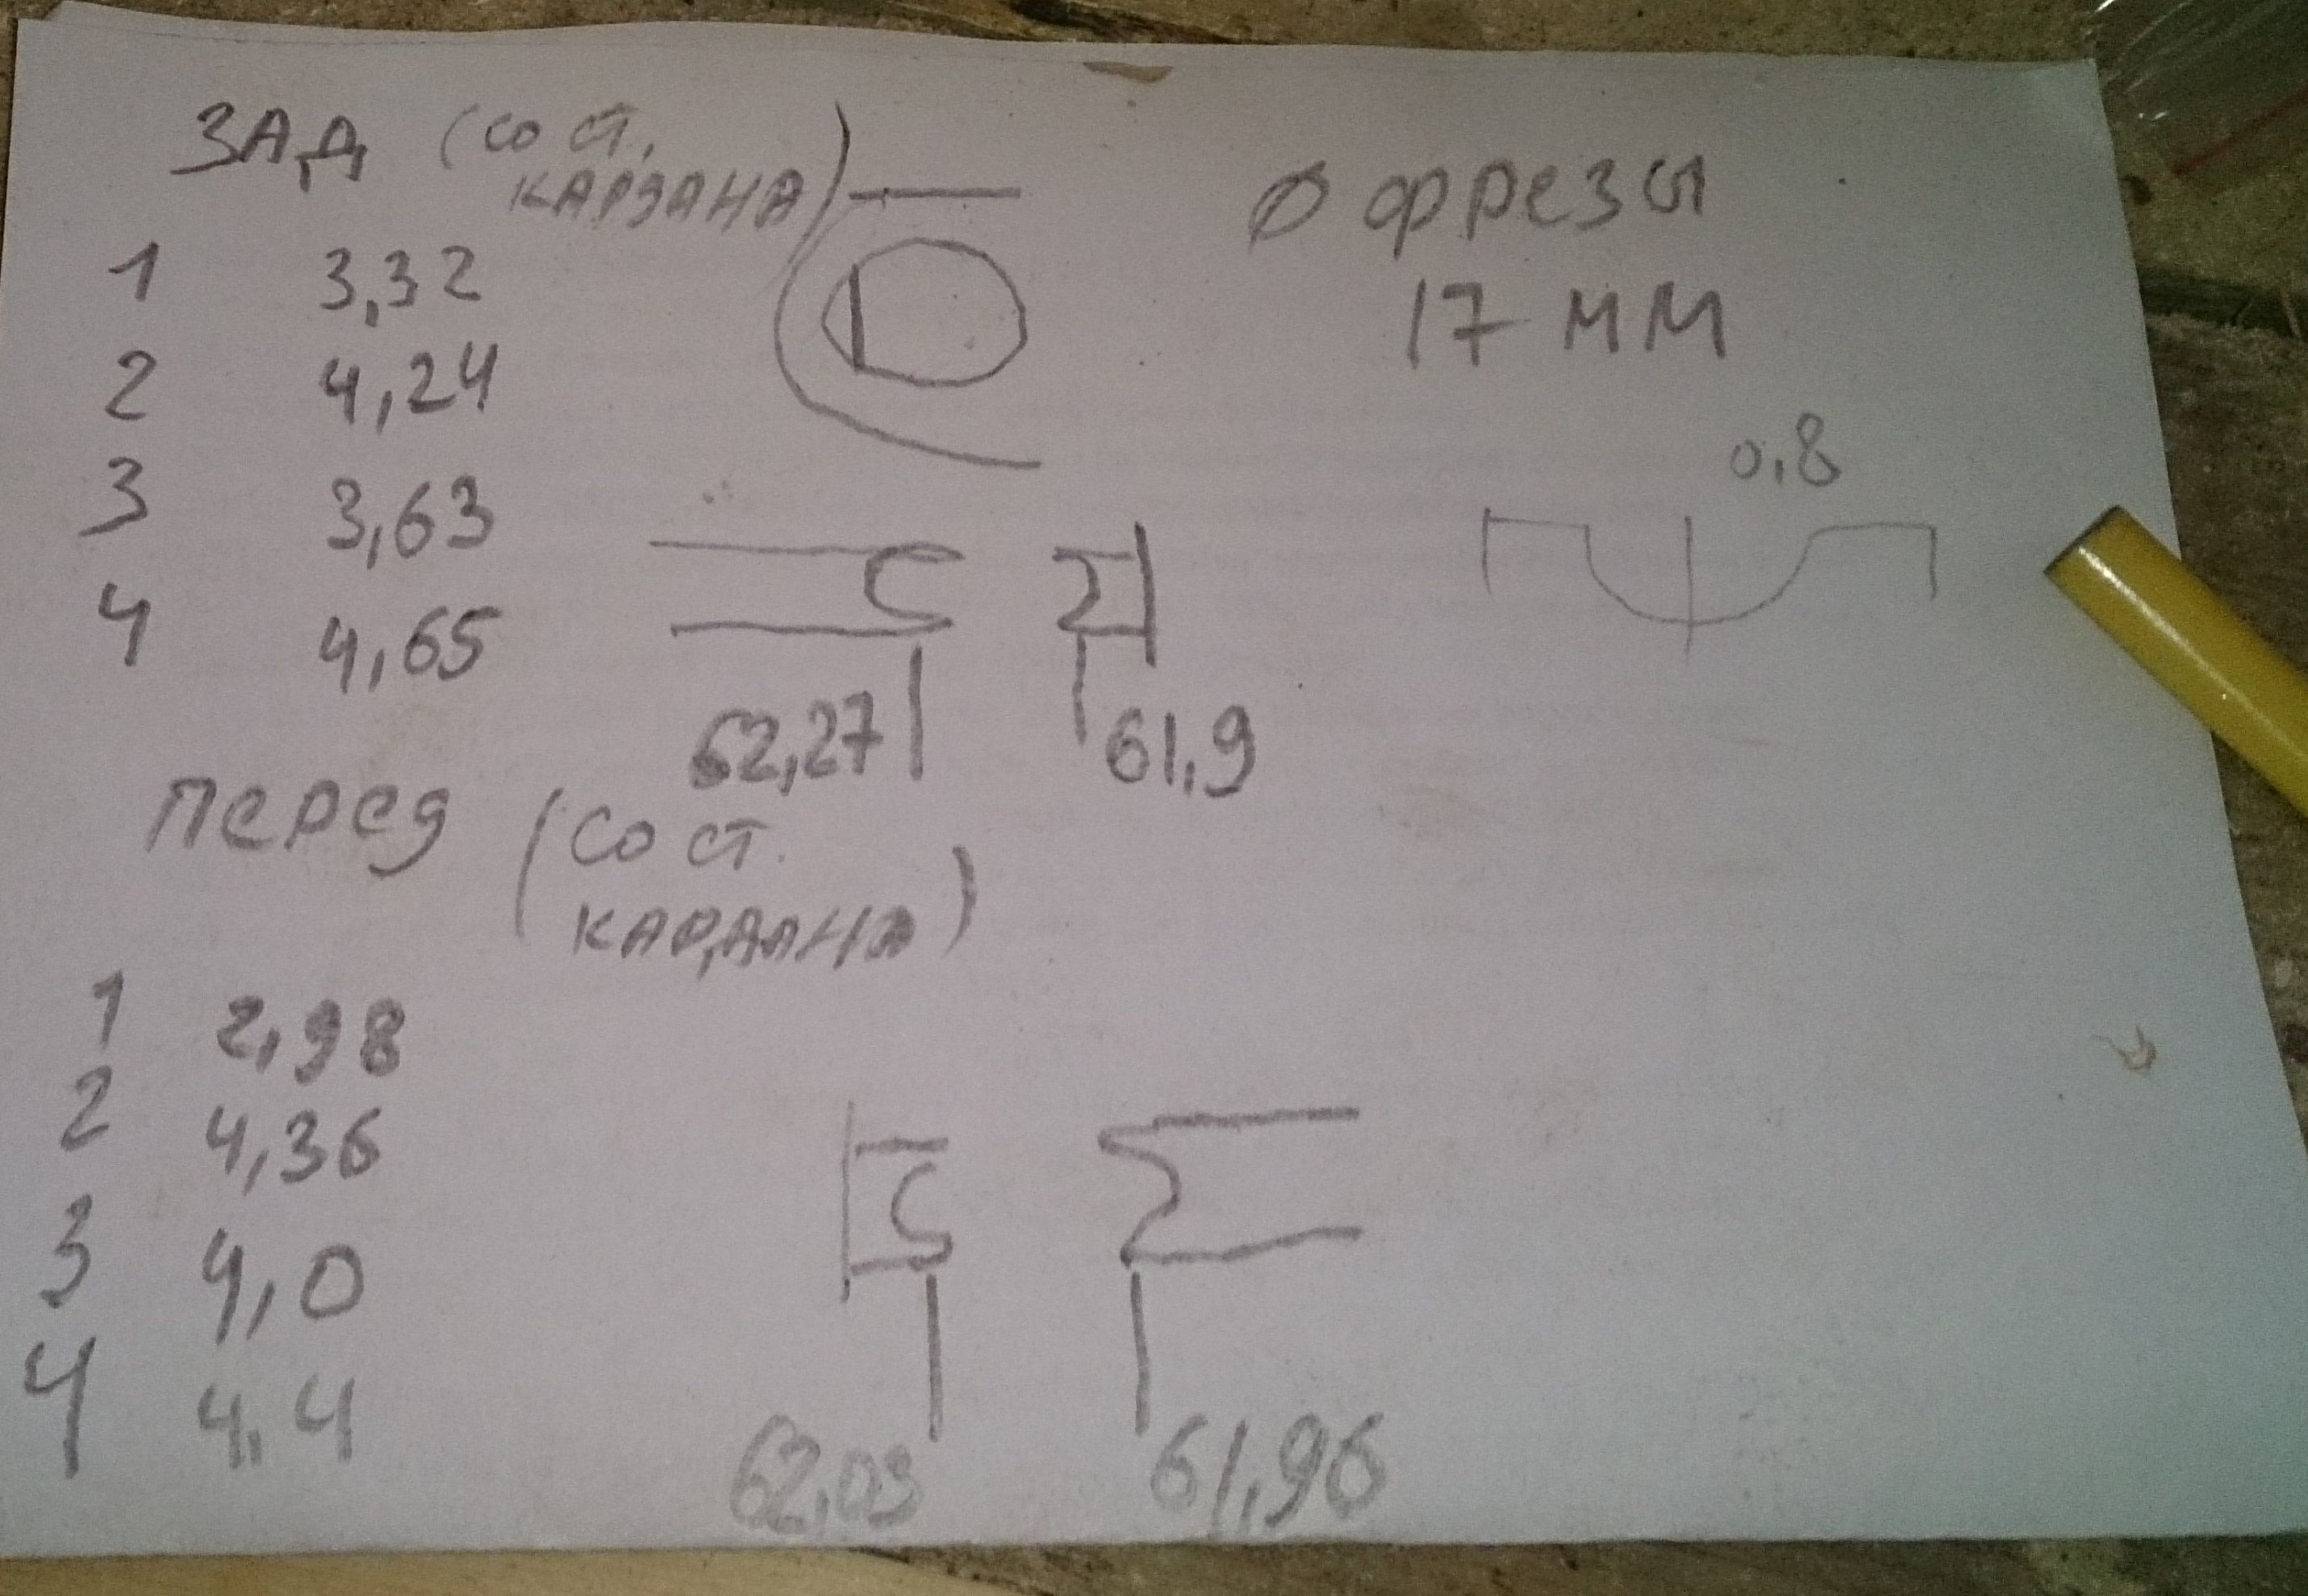 ЗАД (со ст.
КАРДАНА)
1 3,32
2 4,24
3 3,63
4 4,65
62,27 61,9
Перед (со ст.
КАРДАНА)
1 2,98
2 4,36
3 4,0
4 4,4
62,03 61,96
Ø фрезы
17 мм
0,8